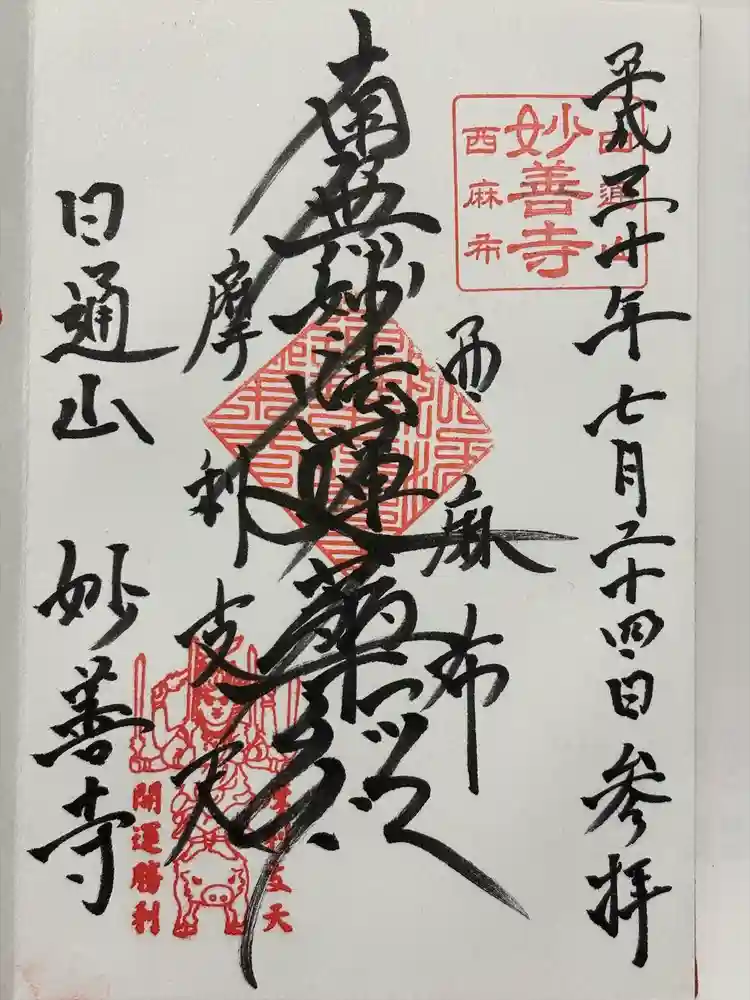 平成三十年七月二十四日 参拝
日通山
妙善寺
西麻布
西麻布
南無妙法蓮華経
摩利支天
摩利支天
開運勝利
日通山 妙善寺